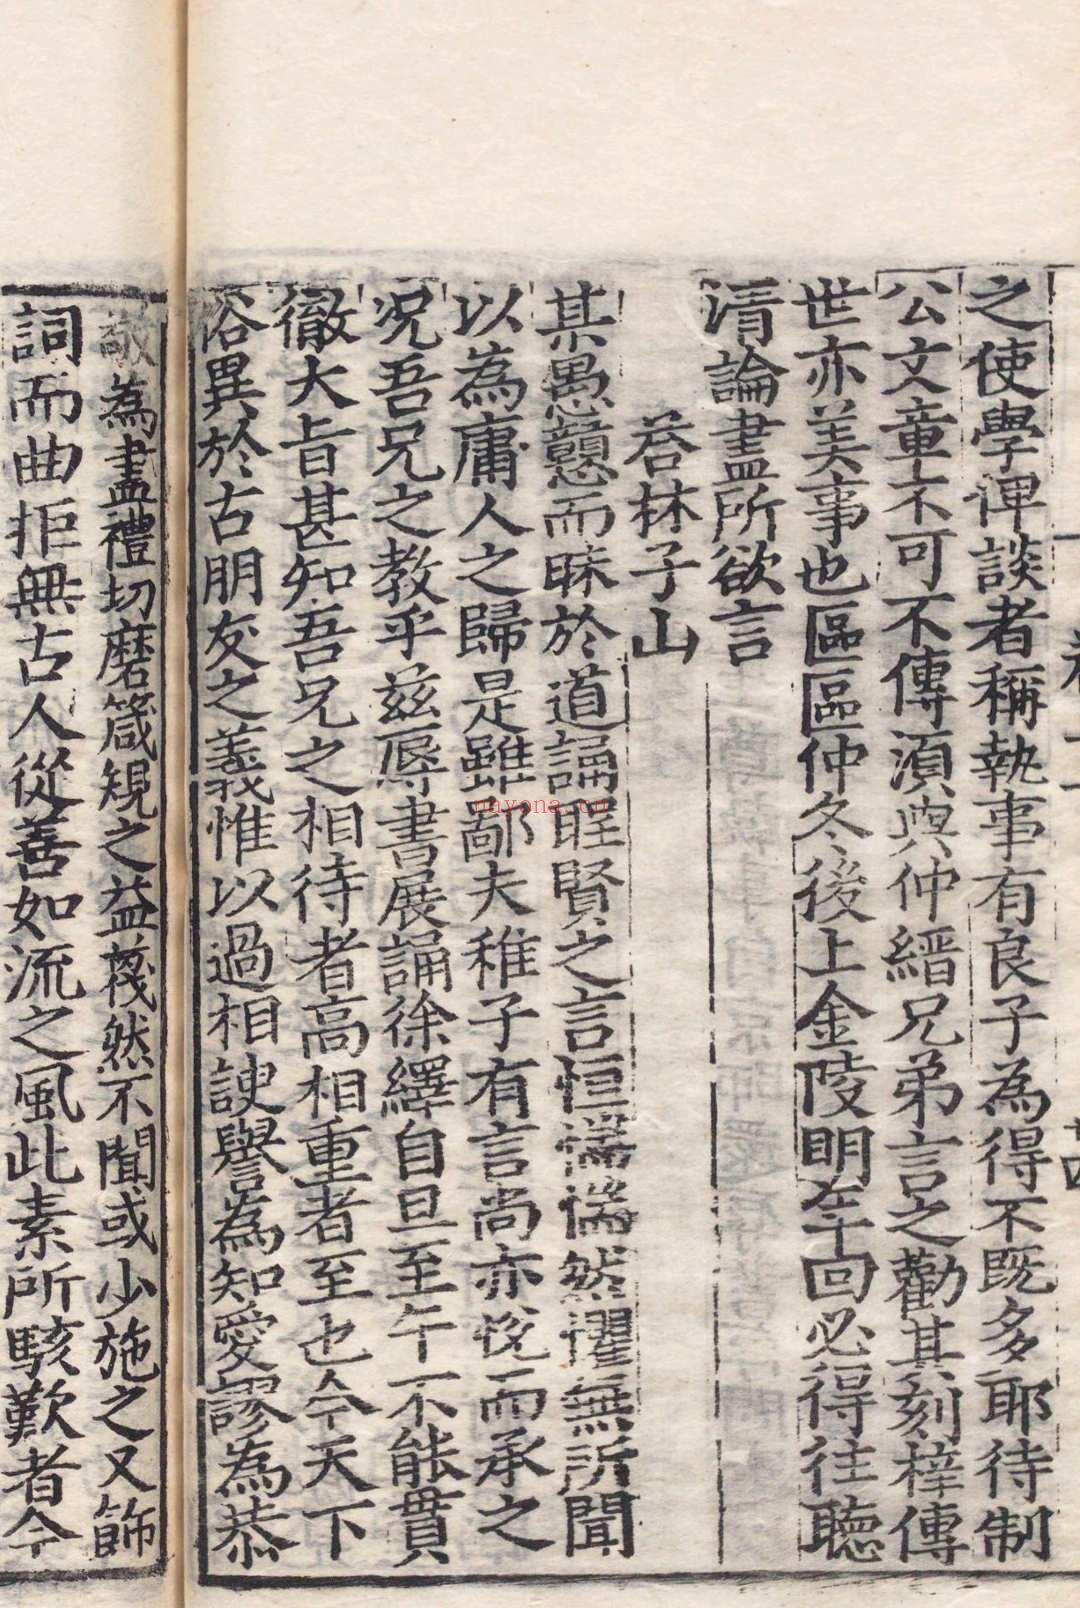 之使學俾談者稱執事有良子為得不既多耶待制
公文章不可不傳須與仲縉兄弟言之勸其刻梓傳
世亦美事也區區仲冬後上金陵明年回必得往聽
清論盡所欲言
荅林子山
某愚戇而昧於道誦聖賢之言恒惴惴然懼無所聞
以為庸人之歸是雖鄙夫稚子有言尚亦悅而承之
况吾兄之教乎茲辱書展誦徐繹自旦至午不能貫
徹大旨甚知吾兄之相待者高相重者至也今天下
俗異於古朋友之義惟以過相諛譽為知愛謬為恭
敬為盡禮切磨箴規之益蔑然不聞或少施之又飾
詞而曲拒無古人從善如流之風此素所駭歎者今
nayona.cn